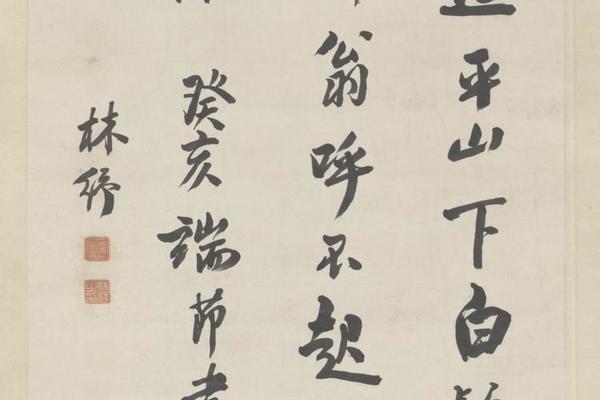 平山下白
翁呼不起
癸亥端节
林纾